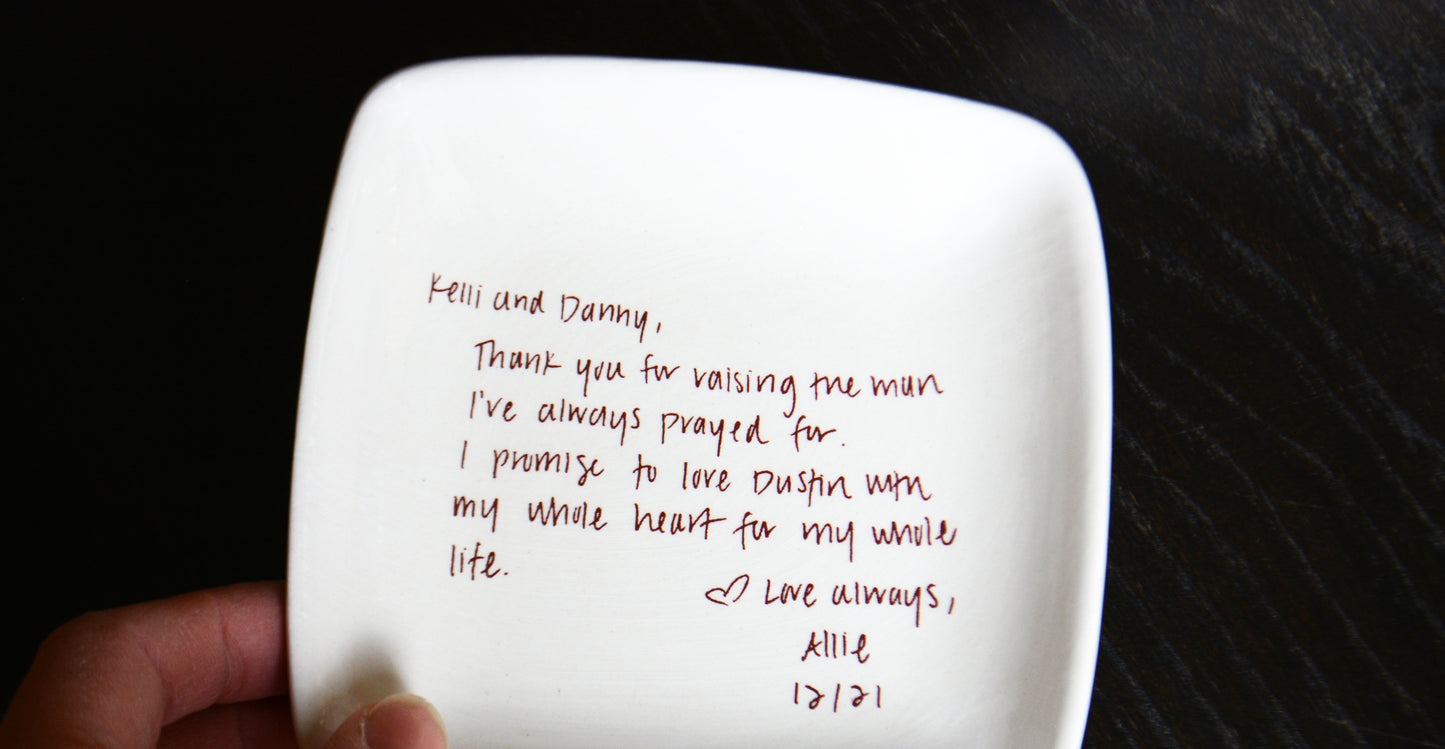 Kelli and Danny,
Thank you for raising the man
I've always prayed for.
I promise to love Dustin with
my whole heart for my whole
life.
♡ Love always,
Allie
12/21